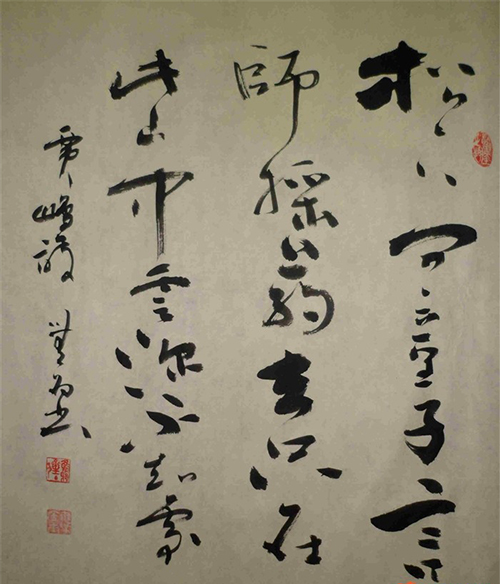 松下问童子言
師採葯去只在
此山中雲深不知處
賈嶋詩